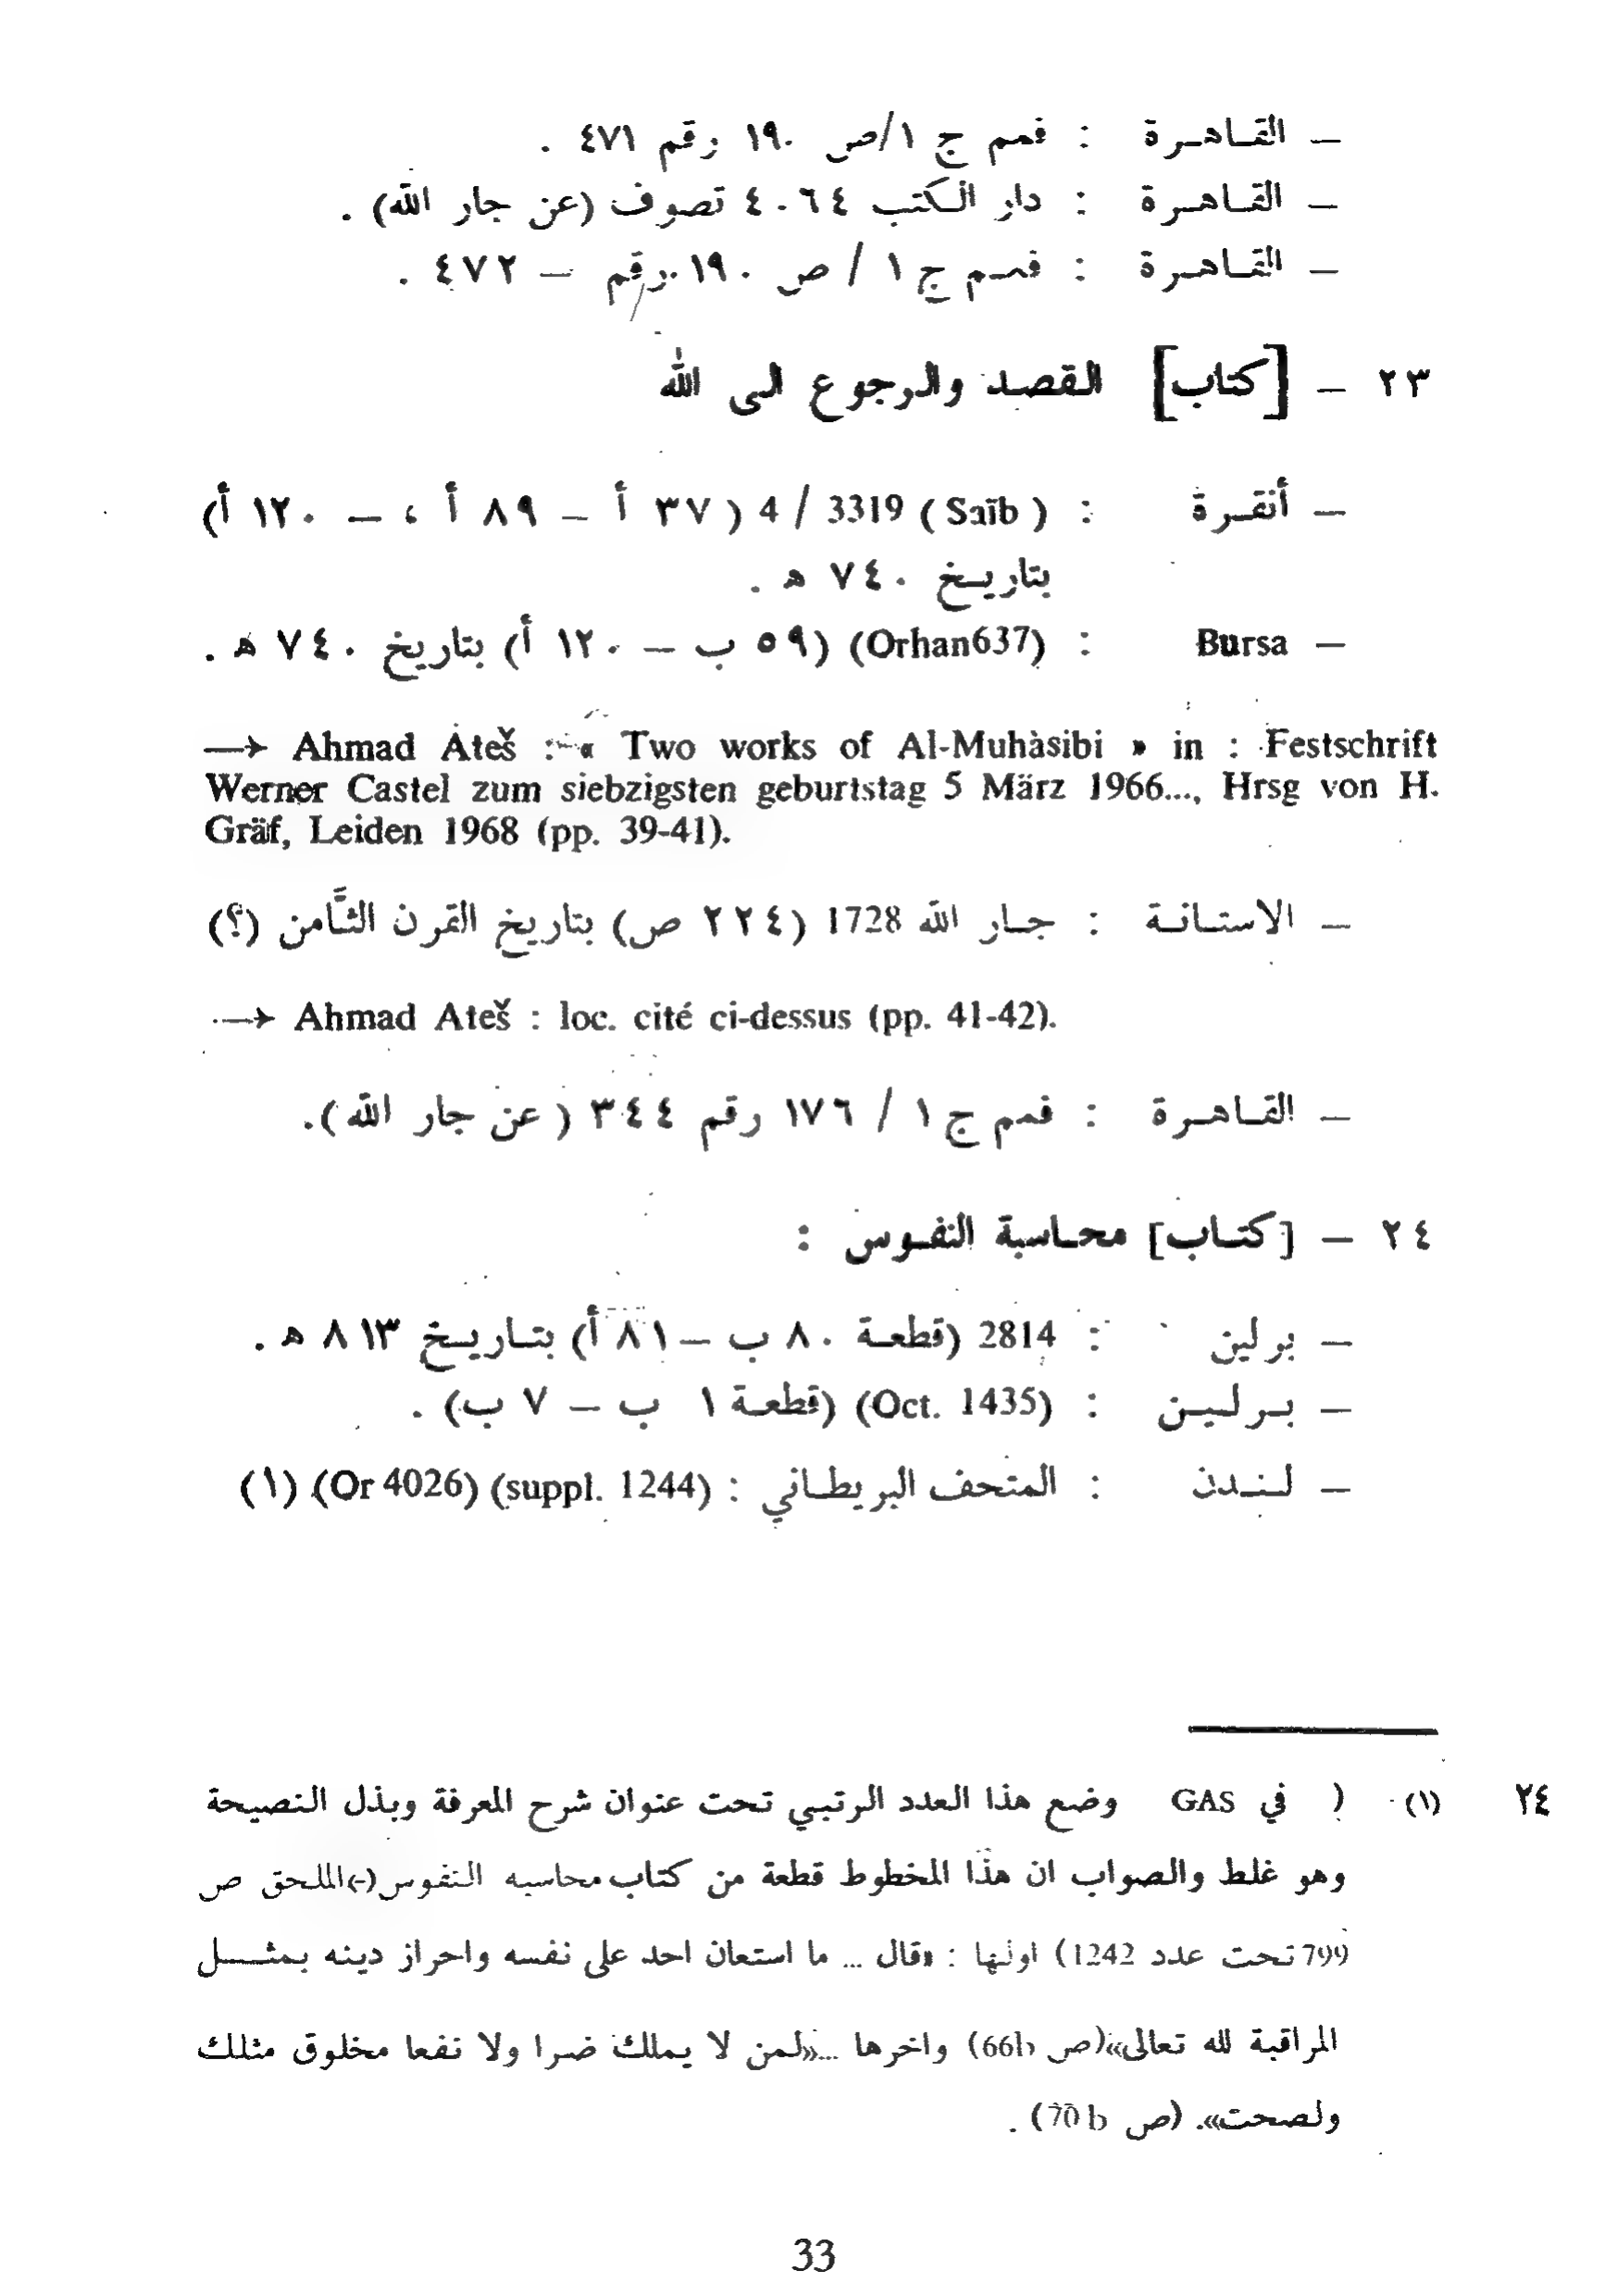 — القاهرة : فمم ج ١/ص ١٩٠ رقم ٤٧١ .
— القاهرة : دار الكتب ٤٠٦٤ تصوف (عن جار الله) .
— القاهرة : فمم ج ١ / ص ١٩٠ رقم — ٤٧٢ .
٢٣ — [كتاب] القصد والرجوع الى الله
— أنقرة : ( Saïb ) 3319 / 4 ( ٣٧ أ — ٨٩ أ ، — ١٢٠ أ)
بتاريخ ٧٤٠ ه .
— Bursa : (Orhan637) (٥٩ ب — ١٢٠ أ) بتاريخ ٧٤٠ ه .
—→ Ahmad Ateš : « Two works of Al-Muhàsibi » in : Festschrift
Werner Castel zum siebzigsten geburtstag 5 März 1966..., Hrsg von H.
Gräf, Leiden 1968 (pp. 39-41).
— الاستانة : جار الله 1728 (٢٢٤ ص) بتاريخ القرن الثَّامن (؟)
—→ Ahmad Ateš : loc. cité ci-dessus (pp. 41-42).
— القاهرة : فمم ج ١ / ١٧٦ رقم ٣٤٤ ( عن جار الله ).
٢٤ — [كتاب] محاسبة النفوس :
— برلين : 2814 (قطعة ٨٠ ب — ٨١ أ) بتاريخ ٨١٣ ه .
— برلين : (Oct. 1435) (قطعة ١ ب — ٧ ب) .
— لندن : المتحف البريطاني : (suppl. 1244) (Or 4026) (١)
٢٤ (١) ( في GAS وضع هذا العدد الرتبي تحت عنوان شرح المعرفة وبذل النصيحة
وهو غلط والصواب ان هذا المخطوط قطعة من كتاب محاسبه النفوس(-)الملحق ص
799 تحت عدد 1242) اولها : «قال ... ما استعان احد على نفسه واحراز دينه بمثل
المراقبة لله تعالى»(ص 66b) واخرها ...«لمن لا يملك ضرا ولا نفعا مخلوق مثلك
ولصحت». (ص 70b) .
33